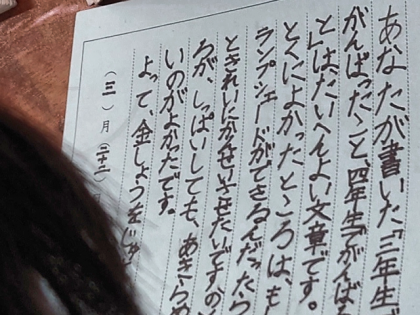 あなたが書いた「三年生で
がんばったこと、四年生でがんばる
と」はたいへんよい文章です。
とくによかったところは、も
ランプシェードができるんだったら
ときれいにかんせいさせたいですのと
ろが、しっぱいしても、あきらめ
いのがよかったです。
よって、金しょうをじゅ
(三)月(二十二)